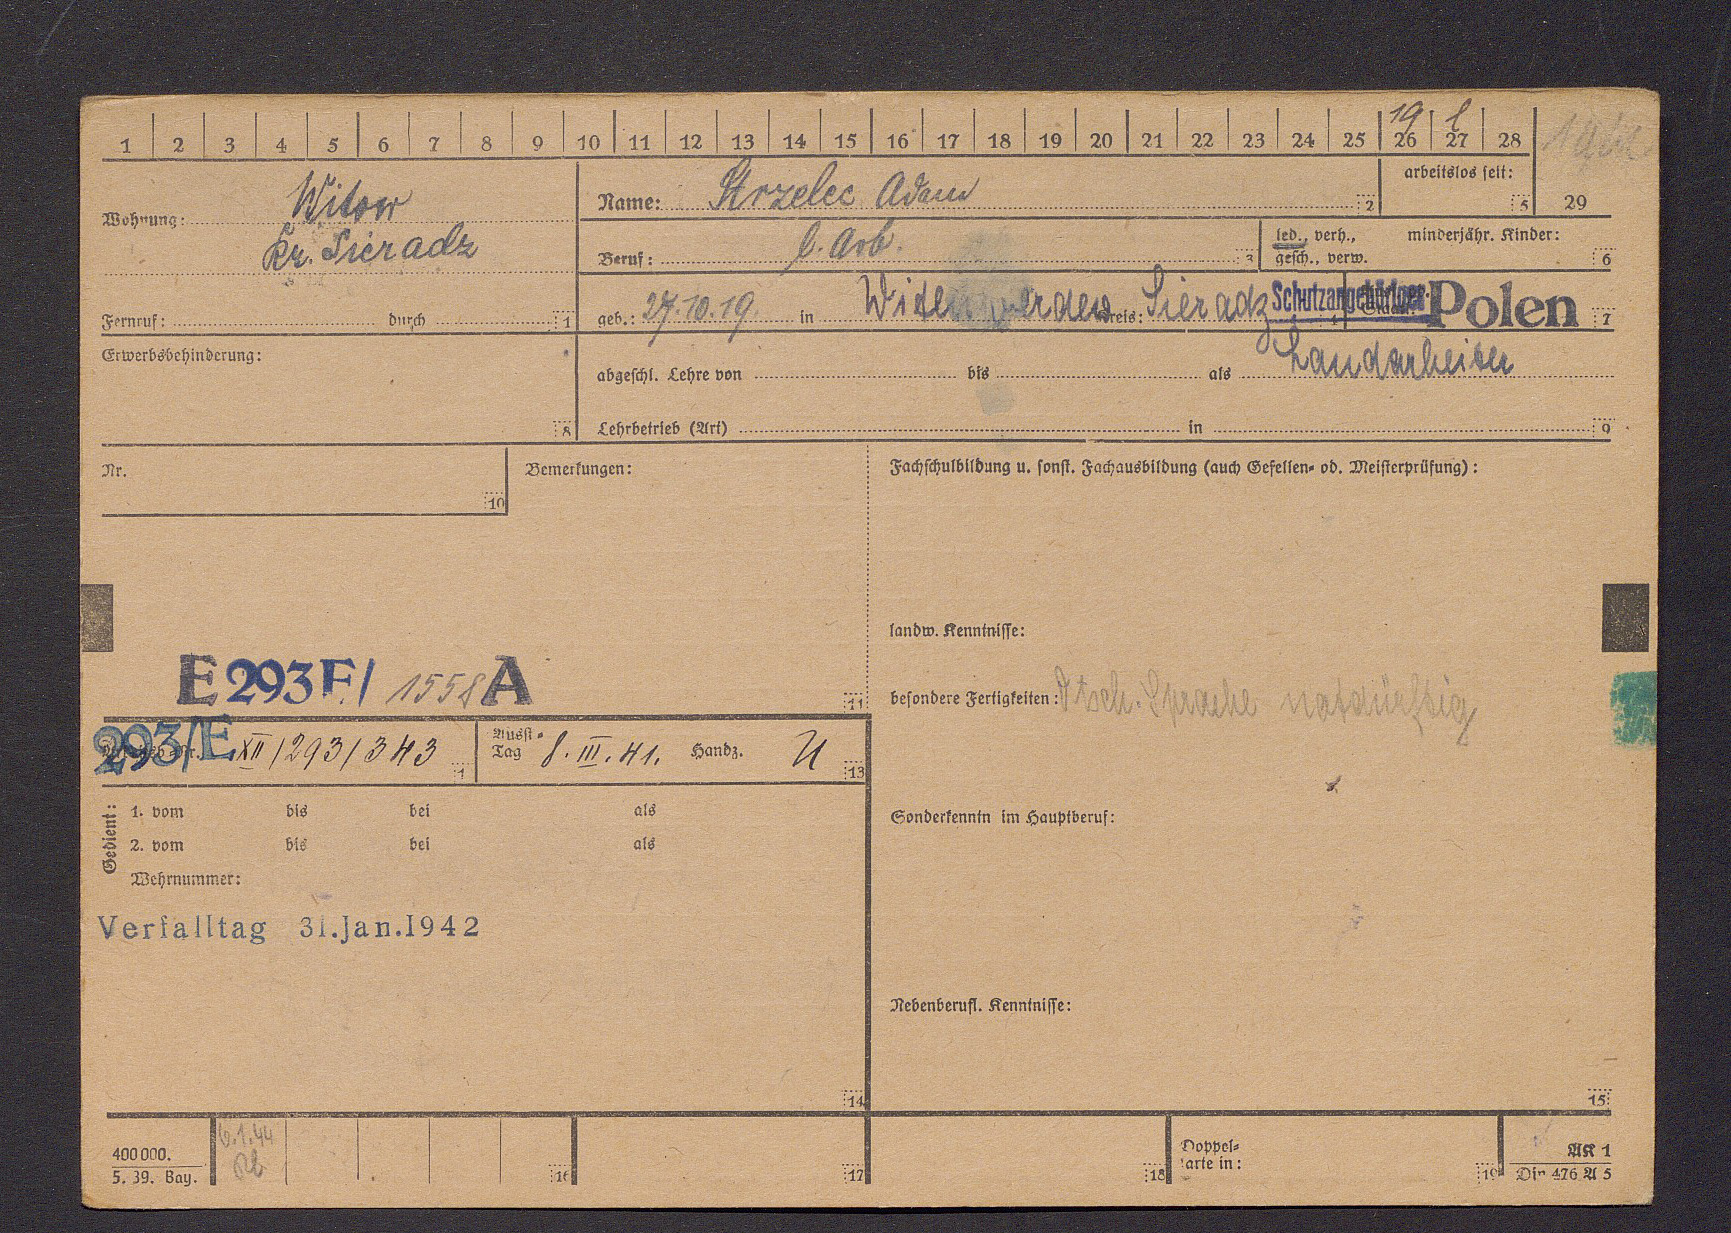 1 2 3 4 5 6 7 8 9 10 11 12 13 14 15 16 17 18 19 20 21 22 23 24 25 26 27 28
19 l
Wohnung: Witow
Kr. Sieradz
Fernruf: durch 1
Name: Strzelec Adam 2
arbeitslos seit: 5
29
Beruf: l. Arb. 3
led., verh., gesch., verw.
minderjähr. Kinder: 6
geb.: 27.10.19 in Kreis: Sieradz 4
Schutzangehöriger Polen 7
Erwerbsbehinderung: 8
abgeschl. Lehre von bis als Landarbeiter
Lehrbetrieb (Art) in 9
Nr. 10
Bemerkungen:
Fachschulbildung u. sonst. Fachausbildung (auch Gesellen- od. Meisterprüfung):
landw. Kenntnisse:
E 293 E/ 1558 A
11
besondere Fertigkeiten: Dtsch. Sprache notdürftig
293/E XII/293/343
Ausst.-Tag 8. III. 41. Handz. 13
Gedient:
1. vom bis bei als
2. vom bis bei als
Wehrnummer:
Sonderkenntn im Hauptberuf:
Verfalltag 31.Jan.1942
Nebenberufl. Kenntnisse:
14
15
400 000.
5. 39. Bay.
6.1.44
16
17
18
Doppel-
karte in:
19
AK 1
Din 476 A 5